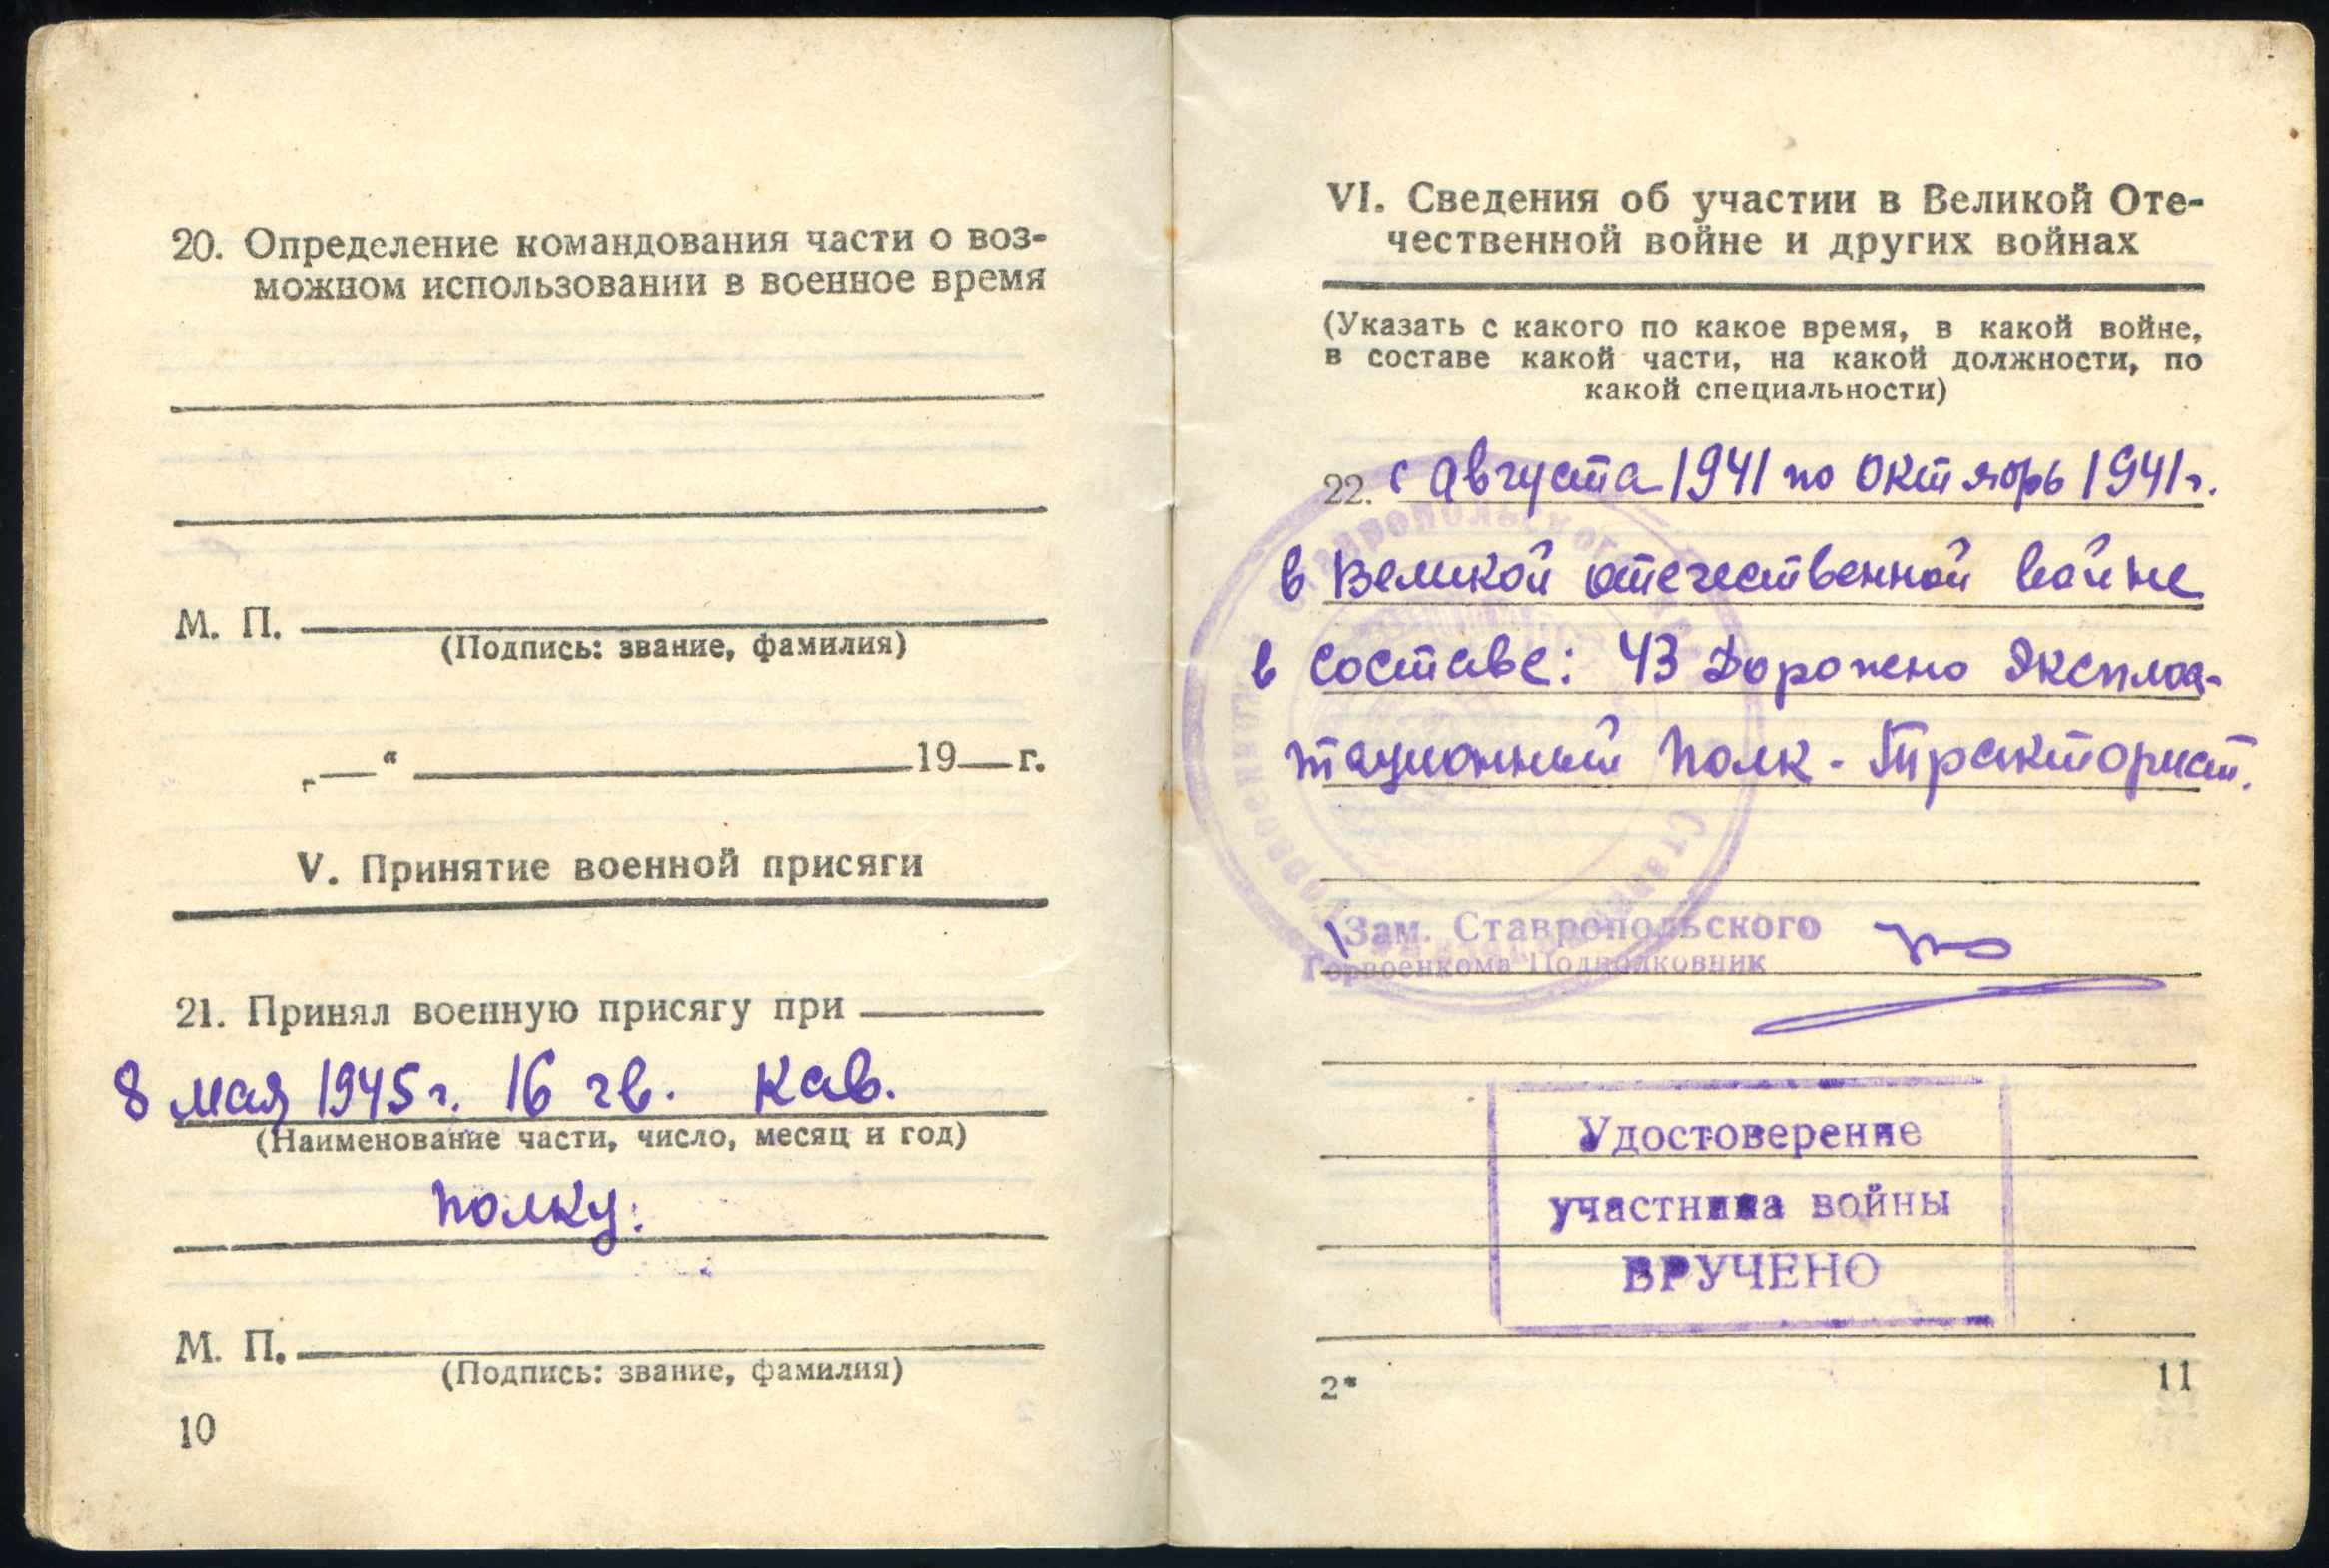 20. Определение командования части о воз-
можном использовании в военное время
М. П.
(Подпись: звание, фамилия)
„—“ 19—г.
V. Принятие военной присяги
21. Принял военную присягу при
8 мая 1945г. 16 гв. кав.
(Наименование части, число, месяц и год)
полку.
М. П.
(Подпись: звание, фамилия)
10
VI. Сведения об участии в Великой Оте-
чественной войне и других войнах
(Указать с какого по какое время, в какой войне,
в составе какой части, на какой должности, по
какой специальности)
22. с Августа 1941 по Октябрь 1941г.
в Великой отечественной войне
в составе: 43 Дорожно Эксплоа-
тационный полк - Тракторист.
Зам. Ставропольского
Горвоенкома Подполковник
Удостоверение
участника войны
ВРУЧЕНО
2*
11